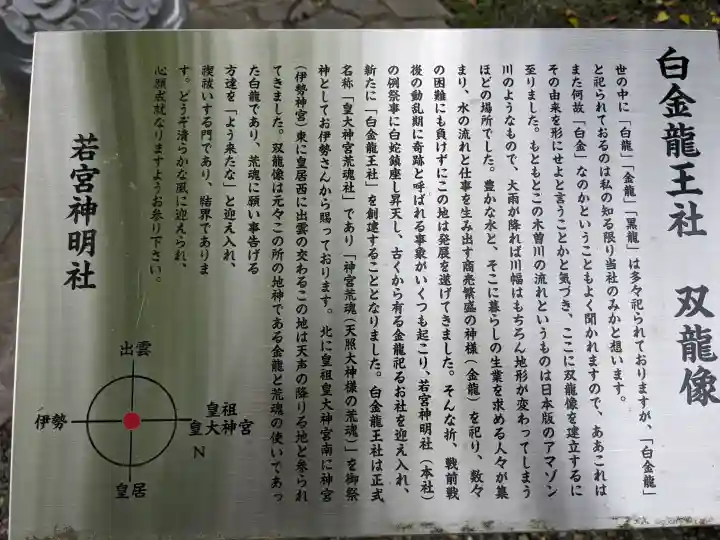 白金龍王社　双龍像
世の中に「白龍」「金龍」「黒龍」は多々祀られておりますが、「白金龍」
と祀られておるのは私の知る限り当社のみかと想います。
また何故「白金」なのかということもよく聞かれますので、ああこれは
その由来を形にせよと言うことかと気づき、ここに双龍像を建立するに
至りました。もともとこの木曽川の流れというものは日本版のアマゾン
川のようなもので、大雨が降れば川幅はもちろん地形が変わってしまう
ほどの場所でした。豊かな水と、そこに暮らしの生業を求める人々が集
まり、水の流れと仕事を生み出す商売繁盛の神様（金龍）を祀り、数々
の困難にも負けずにこの地は発展を遂げてきました。そんな折、戦前戦
後の動乱期に奇跡と呼ばれる事象がいくつも起こり、若宮神明社（本社）
の例祭事に白蛇鎮座し昇天し、古くから有る金龍祀るお社を迎え入れ、
新たに「白金龍王社」を創建することとなりました。白金龍王社は正式
名称「皇大神宮荒魂社」であり「神宮荒魂（天照大神様の荒魂）」を御祭
神としてお伊勢さんから賜っております。　北に皇祖皇大神宮南に神宮
（伊勢神宮）東に皇居西に出雲の交わるこの地は天声の降りる地と参られ
てきました。双龍像は元々この所の地神である金龍と荒魂の使いであっ
た白龍であり、荒魂に願い事告げる
方達を「よう来たな」と迎え入れ、
禊祓いする門であり、結界でありま
す。どうぞ清らかな風に迎えられ、
心願成就なりますようお参り下さい。
若宮神明社
出雲
伊勢
皇祖
皇大神宮
N
皇居